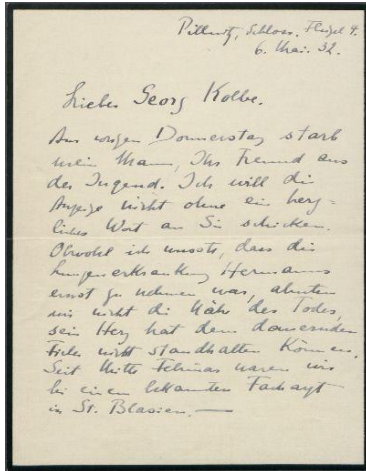 Pillnitz, Schloss. Flügel 4.
6. Mai. 32.
Lieber Georg Kolbe.
Am vorigen Donnerstag starb
mein Mann, Ihr Freund aus
der Jugend. Ich will die
Anzeige nicht ohne ein herz=
liches Wort an Sie schicken.
Obwohl ich wusste, dass die
Lungenerkrankung Hermanns
ernst zu nehmen war, ahnten
wir nicht die Nähe des Todes,
sein Herz hat dem dauernden
Fieber nicht standhalten können.
Seit Mitte Februar waren wir
bei einem bekannten Facharzt
in St. Blasien. —